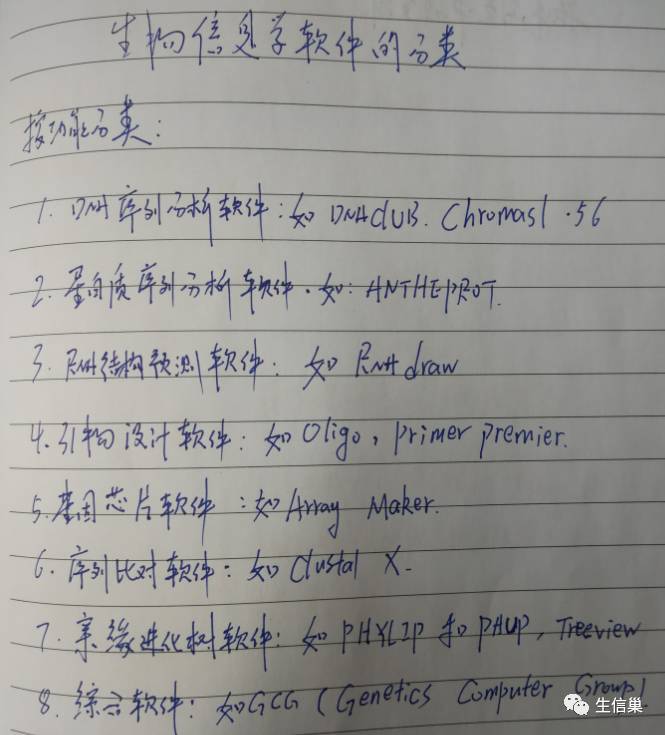 生物信息学软件的分类
按功能分类:
1. DNA序列分析软件:如DNAclub. Chromas1.56
2. 蛋白质序列分析软件.如:ANTHEPROT.
3. RNA结构预测软件: 如 RNAdraw
4. 引物设计软件:如Oligo, primer premier.
5. 基因芯片软件:如Array Maker.
6. 序列比对软件:如 Clustal X.
7. 亲缘进化树软件:如 PHYLIP 和 PAUP, Treeview
8. 综合软件:如GCG (Genetics Computer Group).
生信巢